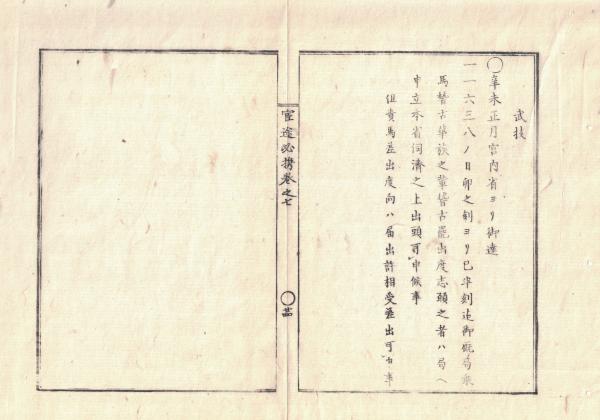 武技
○辛未正月宮内省ヨリ御達
一一六三八ノ日卯之刻ヨリ巳半刻迄御厩局乗
馬稽古華族之輩稽古罷出度志願之者ハ局ヘ
申立本省伺済之上出頭可申候事
但貴馬差出度向ハ届出許相受差出可申事
官途必携巻之七
○廿四